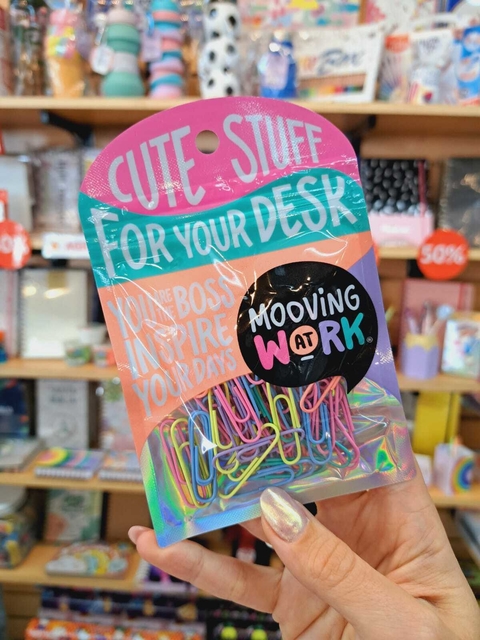 CUTE STUFF
FOR YOUR DESK
YOU'RE BOSS
INSPIRE
YOUR DAYS
MOOVING
AT
WORK
50%